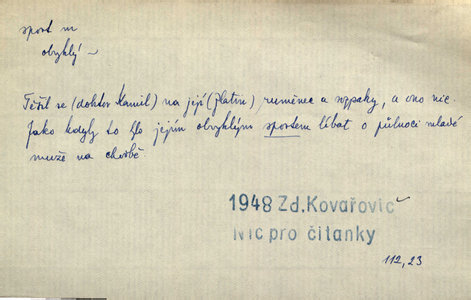 sport m
obvyklý ~
Těšil se (doktor Kamil) na její (Zlatin) ruměnec a rozpaky, a ono nic.
Jako kdyby to bylo jejím obvyklým sportem líbat o půlnoci mladé
muže na chodbě
1948 Zd. Kovařovic
Nic pro čítanky
112,23